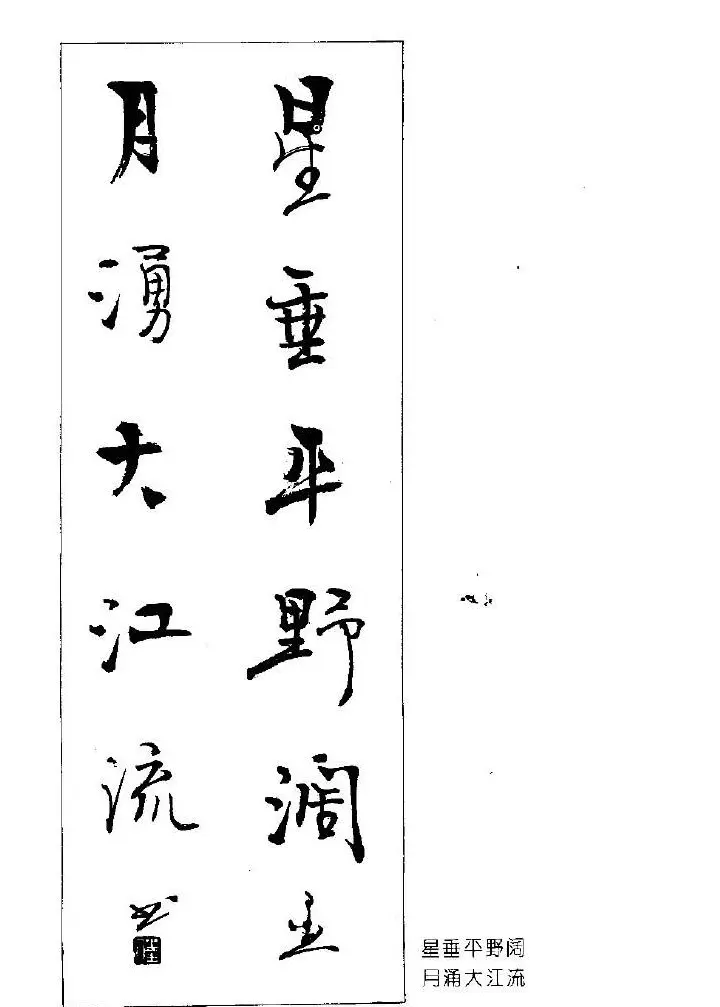 星垂平野濶
月湧大江流
星垂平野阔
月涌大江流